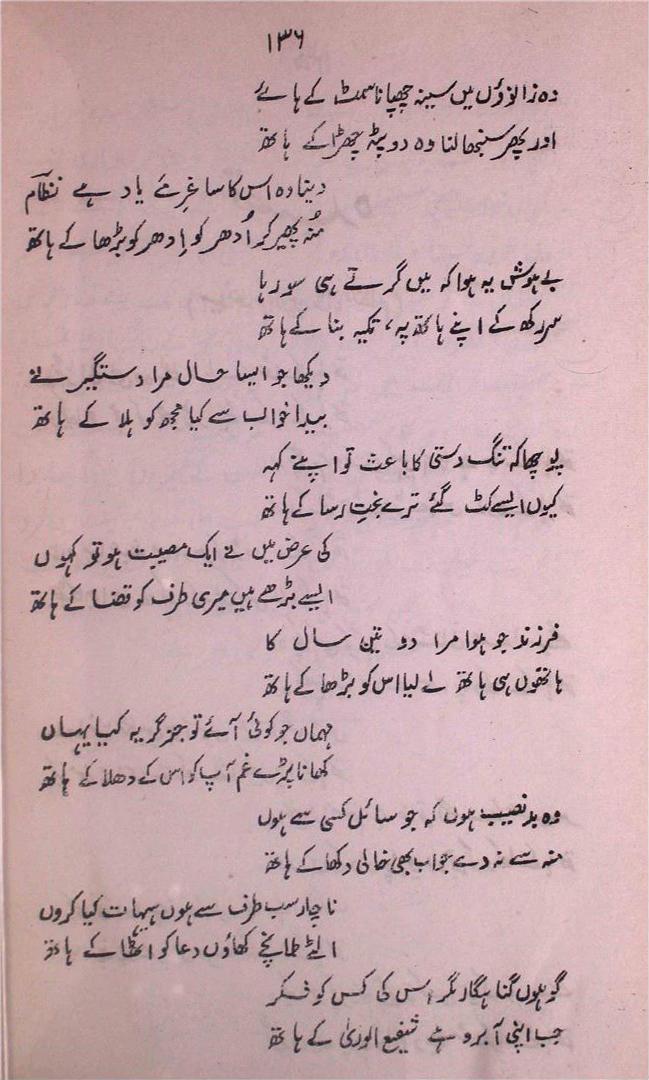 ۱۳۶
وہ زانوؤں میں سینہ چھپانا سمٹ کے ہائے
اور پھر سنبھالنا وہ دوپٹہ چھڑا کے ہاتھ
دینا وہ اس کا ساغرِ مئے یاد ہے نظامؔ
مُنہ پھیر کر اُدھر کو اِدھر کو بڑھا کے ہاتھ
بے ہوش یہ ہوا کہ میں گرتے ہی سو رہا
سر رکھ کے اپنے ہاتھ پہ، تکیہ بنا کے ہاتھ
دیکھا جو ایسا حال مرا دستگیر نے
بیدا خواب سے کیا مجھ کو ہلا کے ہاتھ
پوچھا کہ تنگ دستی کا باعث تو اپنے کہہ
کیوں ایسے کٹ گئے ترے بختِ رسا کے ہاتھ
کی عرض میں نے ایک مصیبت ہو تو کہوں
ایسے بڑھے ہیں میری طرف کو قضا کے ہاتھ
فرزند جو ہوا مرا دو تین سال کا
ہاتھوں ہی ہاتھ لے لیا اس کو بڑھا کے ہاتھ
مہماں جو کوئی آئے تو جز گریہ کیا یہاں
کھانا پڑے غم آپ کو اس کے دھلا کے ہاتھ
وہ بد نصیب ہوں کہ جو سائل کسی سے ہوں
منہ سے نہ دے جواب بھی خالی دکھا کے ہاتھ
ناچار سب طرف سے ہوں ہیہات کیا کروں
الٹے طمانچے کھاؤں دعا کو اٹھا کے ہاتھ
گو ہوں گناہگار مگر اس کی کس کو فکر
جب اپنی آبرو ہے شفیع الوریٰ کے ہاتھ